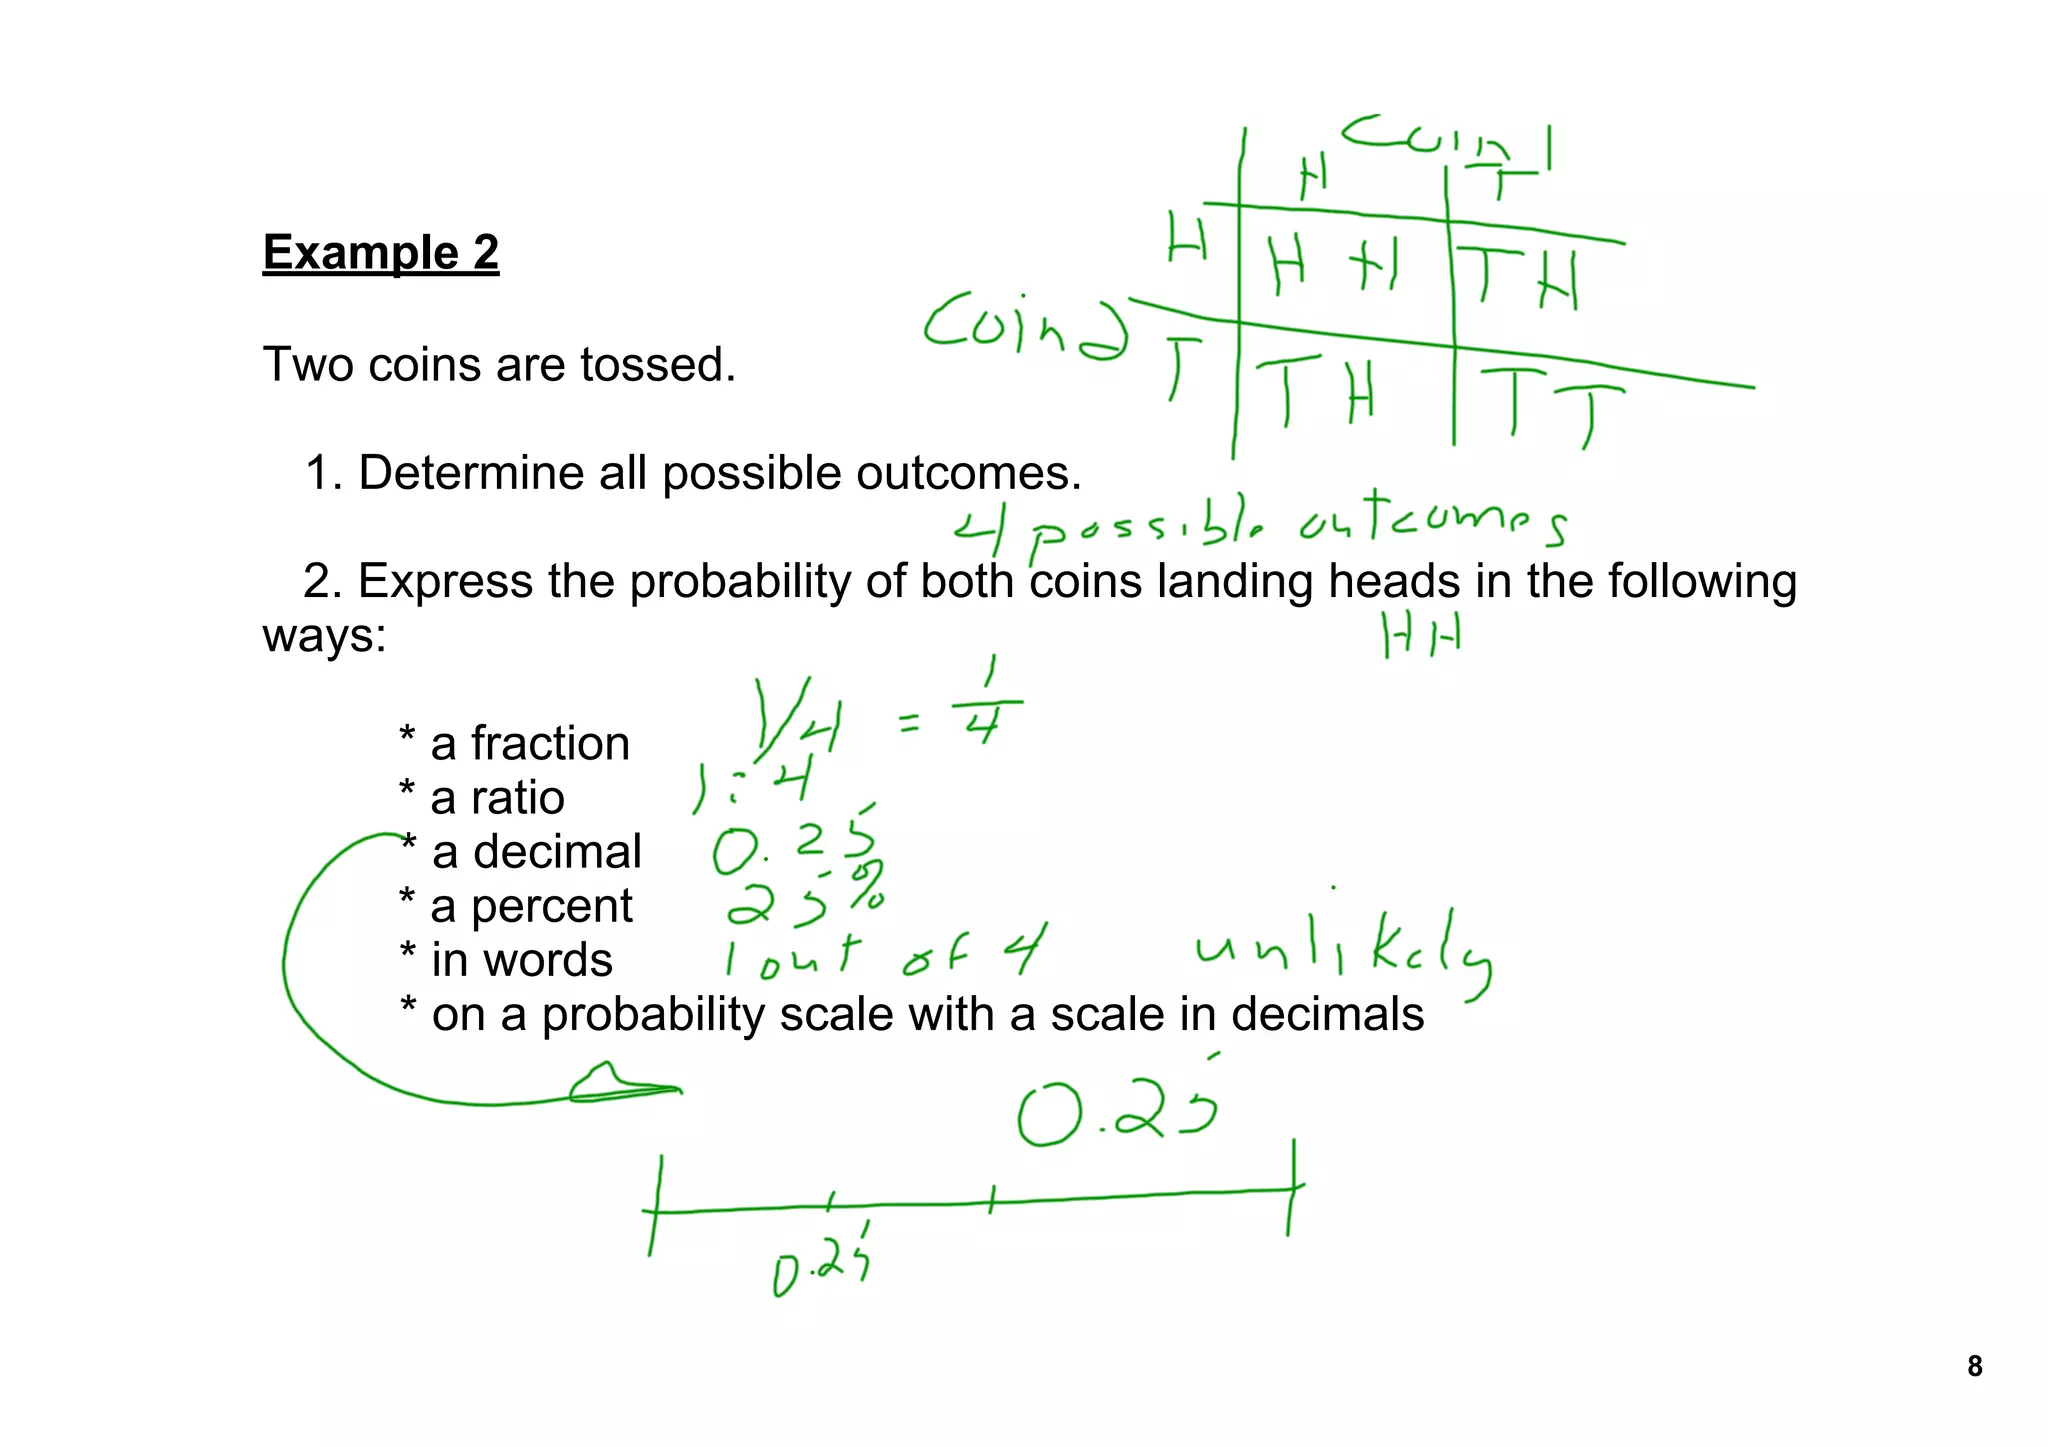 Coin 1
H T
H HH TH
Example 2
Coin 2
T TH TT
Two coins are tossed.
1. Determine all possible outcomes.
4 possible outcomes
2. Express the probability of both coins landing heads in the following
ways:
HH
* a fraction 1/4 = 1/4
* a ratio 1:4
* a decimal 0.25
* a percent 25%
* in words 1 out of 4 unlikely
* on a probability scale with a scale in decimals
0.25
0.25
8